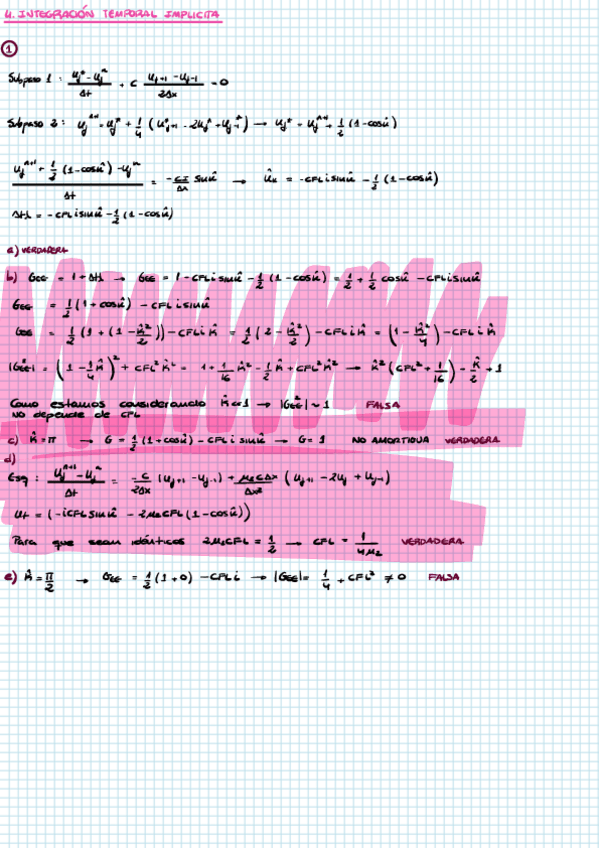 4. INTEGRACIÓN TEMPORAL IMPLICITA
1
Subpaso 1 : (uj* - uj^n)/Δt + c (uj+1 - uj-1)/2Δx = 0
Subpaso 2 : uj^n+1 = uj* + 1/4 (u*j+1 - 2uj* + u*j-1) → uj* = uj^n+1 + 1/2 (1-cosk̂)
(uj^n+1 + 1/2 (1-cosk̂) - uj^n)/Δt = - cI/Δx sink̂ → ûk = -CFL i sink̂ - 1/2 (1-cosk̂)
Δtλ = -CFL i sink̂ - 1/2 (1-cosk̂)
a) VERDADERA
b) GEE = 1 + Δtλ → GEE = 1 - CFL i sink̂ - 1/2 (1 - cosk̂) = 1/2 + 1/2 cosk̂ - CFL i sink̂
GEE = 1/2 (1 + cosk̂) - CFL i sink̂
GEE = 1/2 (1 + (1 - k̂²/2)) - CFL i k̂ = 1/2 (2 - k̂²/2) - CFL i k̂ = (1 - k̂²/4) - CFL i k̂
|GEE²| = (1 - 1/4 k̂)² + CFL² k̂² = 1 + 1/16 k̂² - 1/2 k̂ + CFL² k̂² → k̂² (CFL² + 1/16) - k̂/2 + 1
Como estamos considerando k̂ << 1 → |GEE²| ~ 1 FALSA
NO depende de CFL
c) k̂ = π → G = 1/2 (1 + cosk̂) - CFL i sink̂ → G = 1 NO AMORTIGUA VERDADERA
d)
Esq : (uj^n+1 - uj^n)/Δt = - c/2Δx (uj+1 - uj-1) + μ2cΔx/Δx² (uj+1 - 2uj + uj-1)
ut = (-iCFL sink̂ - 2μ2CFL (1 - cosk̂))
Para que sean idénticos 2μ2CFL = 1/2 → CFL = 1/4μ2 VERDADERA
e) k̂ = π/2 → GEE = 1/2 (1 + 0) - CFL i → |GEE| = 1/4 + CFL² ≠ 0 FALSA